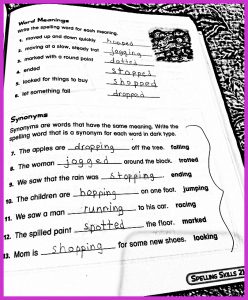 Word Meanings
Write the spelling word for each meaning.
1. moved up and down quickly hopped
2. moving at a slow, steady trot jogging
3. marked with a round point dotted
4. ended stopped
5. looked for things to buy shopped
6. let something fall dropped
Synonyms
Synonyms are words that have the same meaning. Write the
spelling word that is a synonym for each word in dark type.
7. The apples are dropping off the tree. falling
8. The woman jogged around the block. trotted
9. We saw that the rain was stopping. ending
10. The children are hopping on one foot. jumping
11. We saw a man running to his car. racing
12. The spilled paint spotted the floor. marked
13. Mom is shopping for some new shoes. looking
SPELLING SKILLS